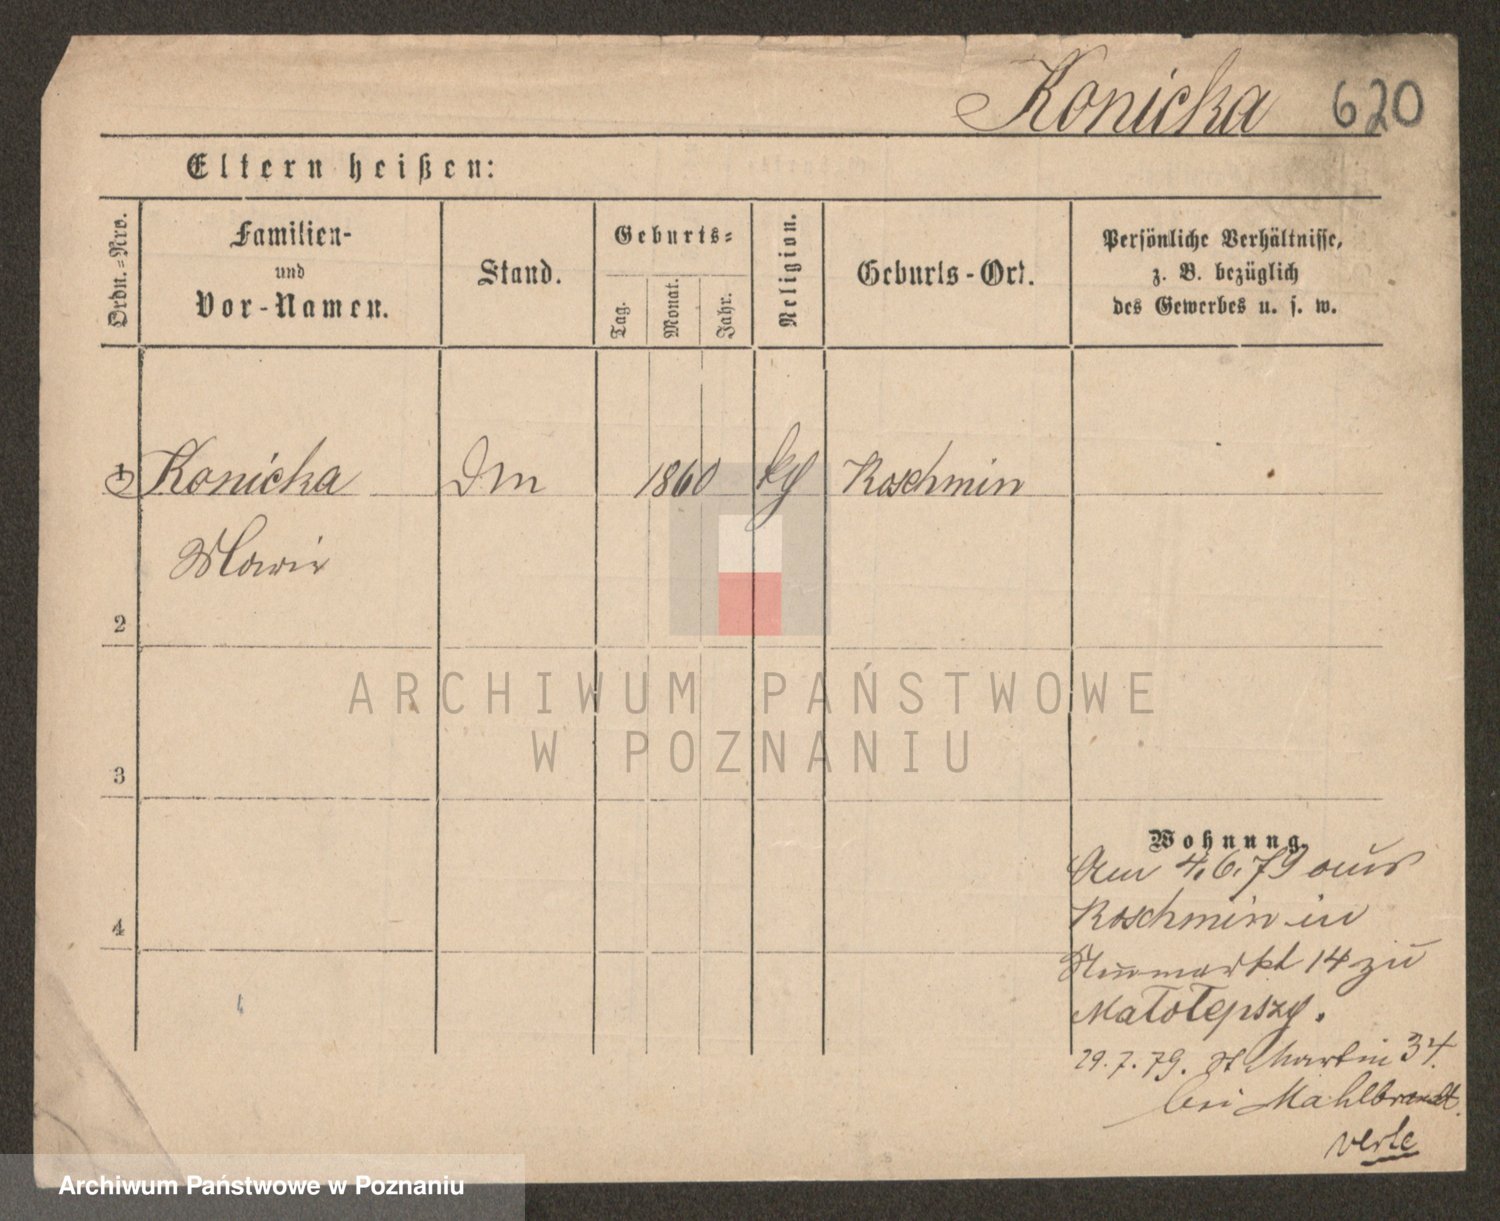 Konicka 620
Eltern heißen:
Ordn.-Nro.
Familien-
und
Vor-Namen.
Stand.
Geburts-
Tag.
Monat.
Jahr.
Religion.
Geburts-Ort.
Persönliche Verhältnisse,
z. B. bezüglich
des Gewerbes u. s. w.
1 Konicka DM 1860 kg Koschmin
Marie
2
ARCHIWUM PAŃSTWOWE
W POZNANIU
3
Wohnung.
Am 4.6.79 aus
4 Koschmin in
Neumarkt 14 zu
Małolepszy.
29.7.79. St Martin 34.
bei Mahlbrandt.
verte
Archiwum Państwowe w Poznaniu